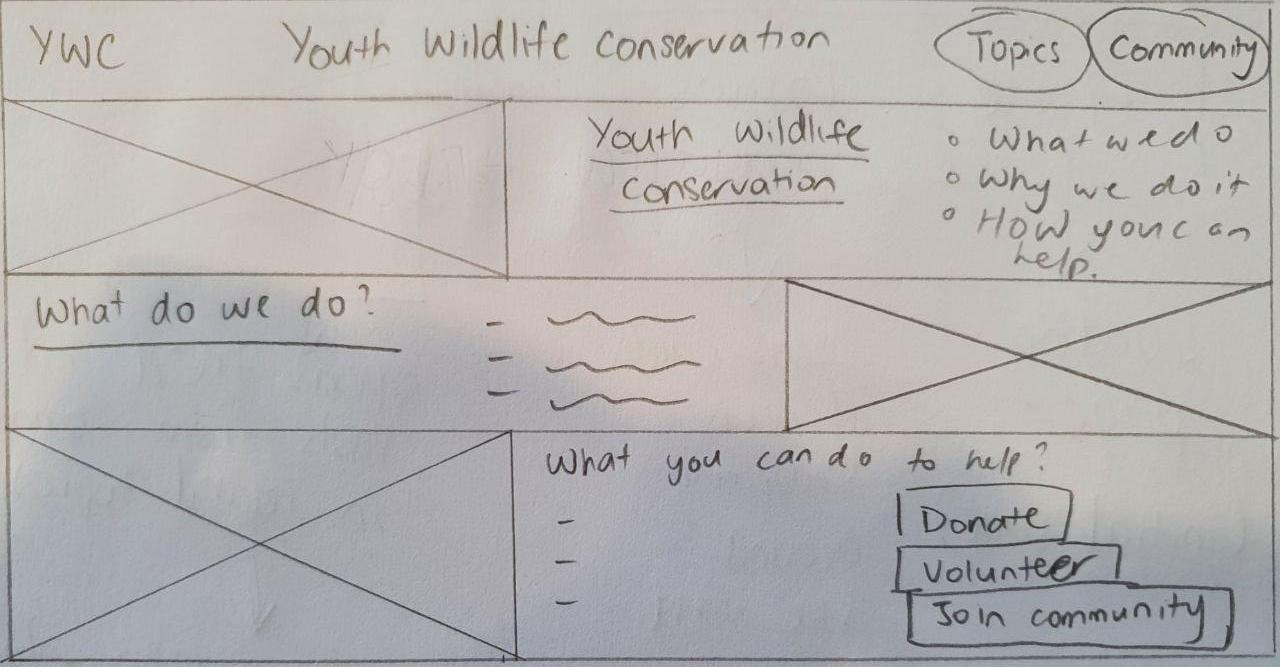 YWC Youth Wildlife Conservation Topics Community
Youth Wildlife
Conservation
What we do
Why we do it
How you can
help.
What do we do?
What you can do to help?
Donate
Volunteer
Join community